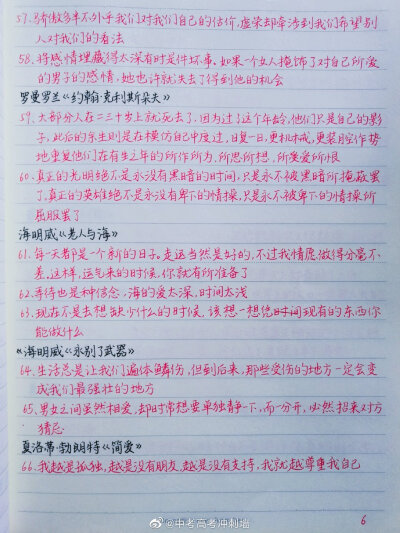 57.骄傲多半不外乎我们对我们自己的估价,虚荣却牵涉到我们希望别
人对我们的看法
58.将感情埋藏得太深有时是件坏事。如果一个女人掩饰了对自己所爱
的男子的感情,她也许就失去了得到他的机会
罗曼罗兰《约翰·克利斯朵夫》
59.大部分人在二三十岁上就死去了,因为过了这个年龄,他们只是自己的影
子,此后的余生则是在模仿自己中度过,日复一日,更机械,更装腔作势
地重复他们在有生之年的所作所为,所思所想,所爱所恨
60.真正的光明绝不是永没有黑暗的时间,只是永不被黑暗所掩蔽罢
了,真正的英雄绝不是永没有卑下的情操,只是永不被卑下的情操所
屈服罢了
海明威《老人与海》
61.每一天都是一个新的日子。走运当然是好的,不过我情愿做得分毫不
差,这样,运气来的时候,你就有所准备了
62.等待也是种信念,海的爱太深,时间太浅
63.现在不是去想缺少什么的时候,该想一想凭时间现有的东西你
能做什么
《海明威《永别了武器》
64.生活总是让我们遍体鳞伤,但到后来,那些受伤的地方一定会变
成我们最强壮的地方
65.男女之间虽然相爱,却时常想要单独静一下,而一分开,必然招来对方
猜忌
夏洛蒂·勃朗特《简爱》
66.我越是孤独,越是没有朋友,越是没有支持,我就越尊重我自己
6
@中考高考冲刺墙